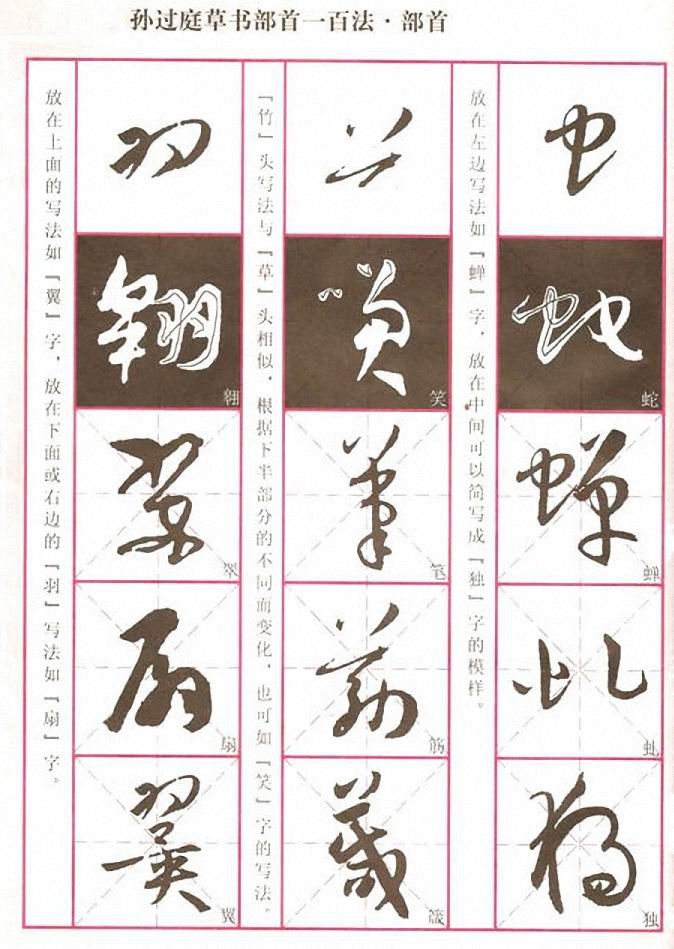 孙过庭草书部首一百法·部首
虫
蛇
蛇
蝉
蝉
虬
虬
独
独
放在左边写法如「蝉」字，放在中间可以简写成「独」字的模样。
笑
笑
笔
笔
筋
筋
箴
箴
「竹」头写法与「草」头相似，根据下半部分的不同面变化，也可如「笑」字的写法。
羽
翱
翱
翠
翠
扇
扇
翼
翼
放在上面的写法如「翼」字，放在下面或右边的「羽」写法如「扇」字。